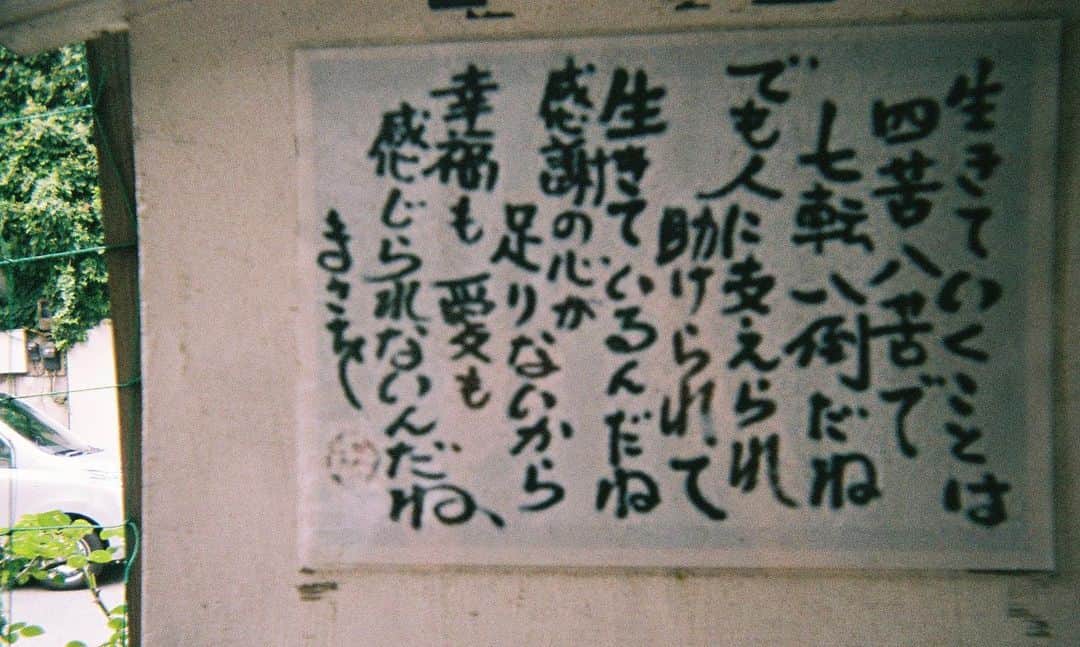 生きていくことは
四苦八苦で
七転八倒だね
でも人に支えられ
助けられて
生きているんだね
感謝の心が
足りないから
幸福も愛も
感じられないんだね、